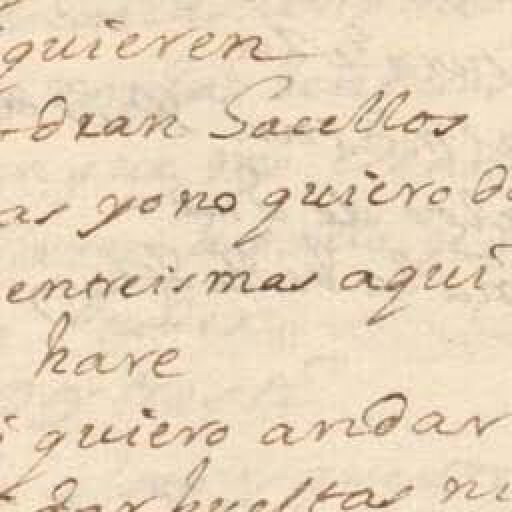 quieren
dran Sacellos
as yo no quiero d
entreis mas aqui
hare
quiero andar
dar bueltas ni